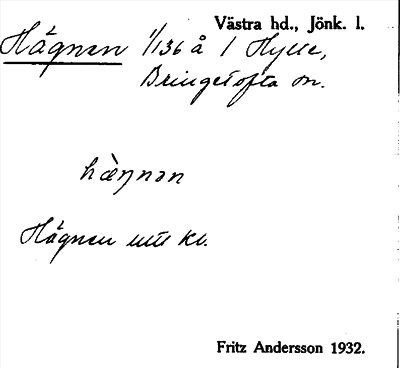 Västra hd., Jönk. l.
Hägnen 1/136 å / Hylle,
Bringetofta sn.
hæ̀ŋnən
Hägnen utt kl.
Fritz Andersson 1932.